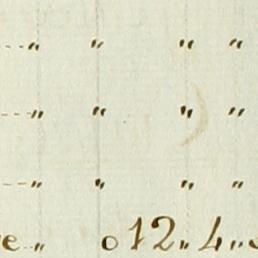 --- " " " "
--- " " " "
--- " " " "
e " 012 " 4 "